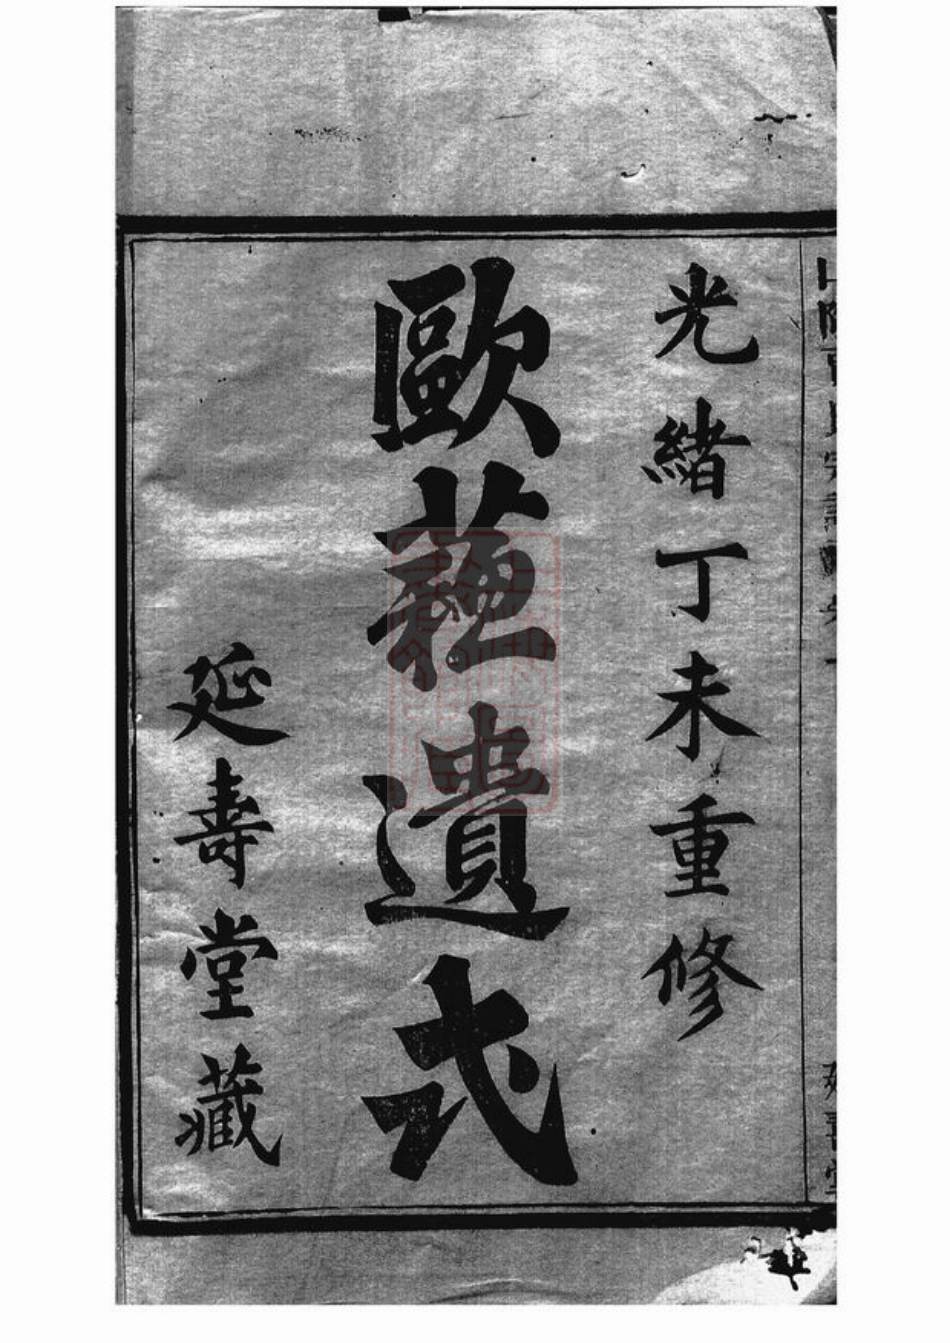 光緒丁未重修
歐蘓遺式
延壽堂藏